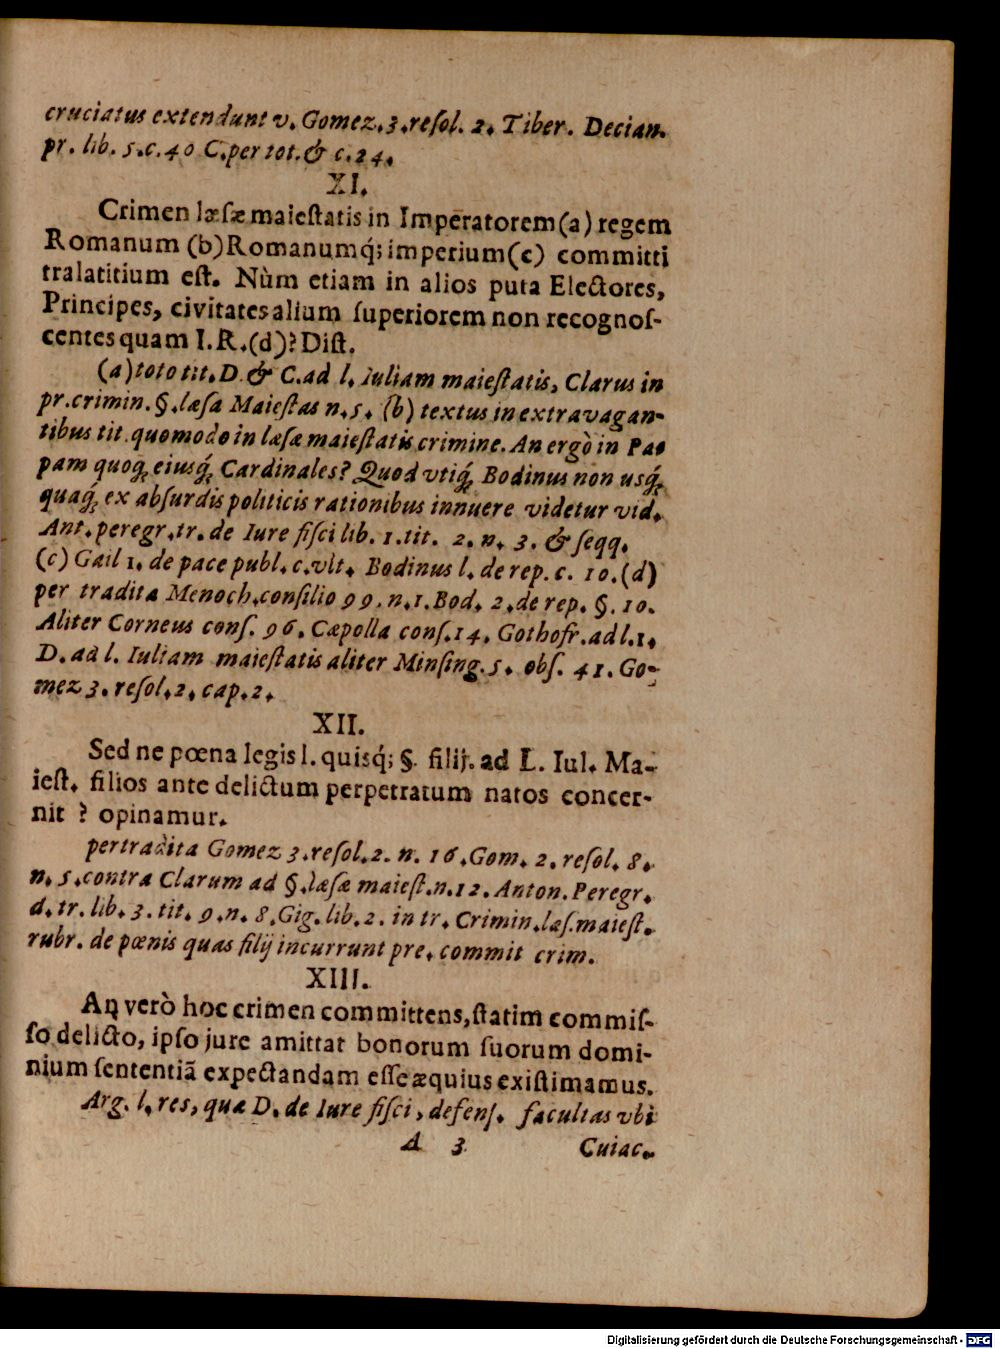 cruciatus extendunt v. Gomez. 3. reſol. 2. Tiber. Decian.
pr. lib. 5. c. 40 C. per tot. & c. 24.
XI.
Crimen læſæ maieſtatis in Imperatorem (a) regem
Romanum (b) Romanumq́; imperium (c) committi
tralatitium eſt. Nùm etiam in alios puta Electores,
Principes, civitates alium ſuperiorem non recognoſ-
centes quam I. R. (d)? Diſt.
(a) toto tit. D & C. ad l. Iuliam maieſtatis, Clarus in
pr. crimin. §. læſa Maieſtas n. 5. (b) textus in extravagan-
tibus tit. quomodo in læſæ maieſtatis crimine. An ergò in Pa-
pam quoq; eiusq́; Cardinales? Quod vtiq́; Bodinus non usq́;
quaq́; ex abſurdis politicis rationibus innuere videtur vid.
Ant. peregr. tr. de Iure fiſci lib. 1. tit. 2. n. 3. & ſeqq.
(c) Gail 1. de pace publ. c. vlt. Bodinus l. de rep. c. 10. (d)
per tradita Menoch. conſilio 99. n. 1. Bod. 2. de rep. §. 10.
Aliter Corneus conſ. 96. Cæpolla conſ. 14. Gothofr. ad l. 1.
D. ad l. Iuliam maieſtatis aliter Minſing. 5. obſ. 41. Go-
mez 3. reſol. 2. cap. 2.
XII.
Sed ne pœna legis l. quisq́; §. filij. ad L. Iul. Ma-
ieſt. filios ante delictum perpetratum natos concer-
nit ? opinamur.
per tradita Gomez 3. reſol. 2. n. 16. Gom. 2. reſol. 8.
n. 5. contra Clarum ad §. læſæ maieſt. n. 12. Anton. Peregr.
d. tr. lib. 3. tit. 9. n. 8. Gig. lib. 2. in tr. Crimin. læſ. maieſt.
rubr. de pœnis quas filij incurrunt pre. commit crim.
XIII.
An verò hoc crimen committens, ſtatim commiſ-
ſo delicto, ipſo jure amittat bonorum ſuorum domi-
nium ſententiã expectandam eſſe æquius exiſtimamus.
Arg. l. res, quæ D. de Iure fiſci, defenſ. facultas vbi
A 3 Cuiac.
Digitalisierung gefördert durch die Deutsche Forschungsgemeinschaft - DFG